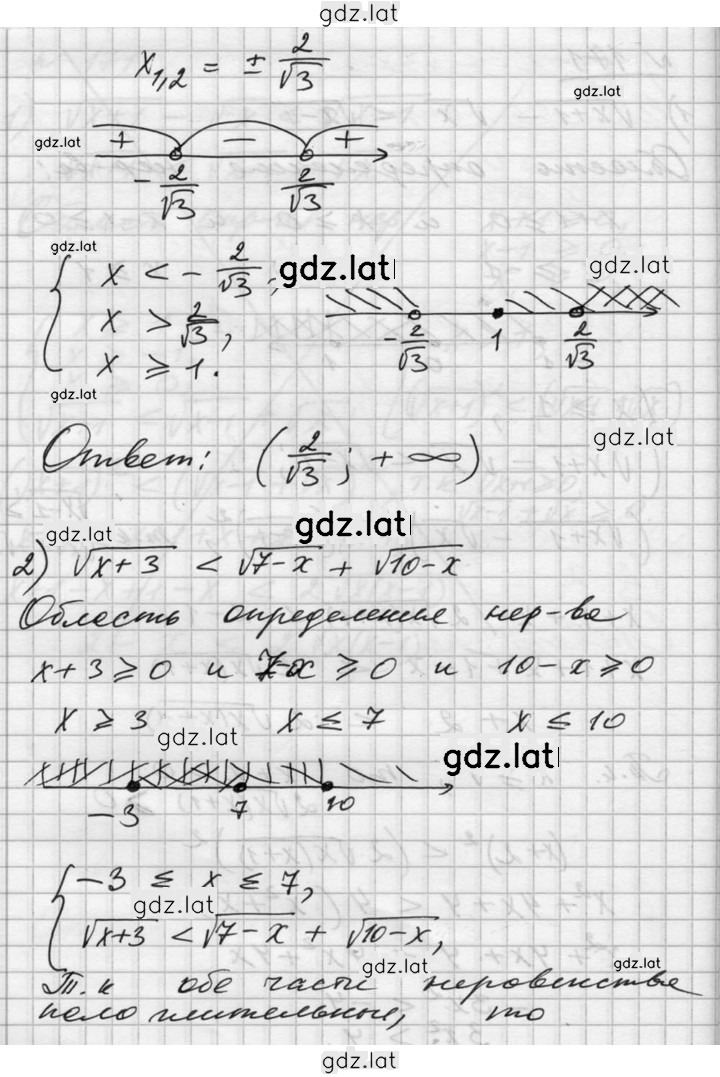 gdz.lat
x₁,₂ = ± 2/√3
gdz.lat
gdz.lat
+ − +
−2/√3 2/√3
gdz.lat
{ x < −2/√3,
gdz.lat
gdz.lat
x > 2/√3,
x ⩾ 1.
−2/√3 1 2/√3
gdz.lat
Ответ: (2/√3; +∞)
gdz.lat
gdz.lat
gdz.lat
2) √(x+3) < √(7−x) + √(10−x)
Область определение нер-ва
x+3 ⩾ 0 и 7−x ⩾ 0 и 10−x ⩾ 0
x ⩾ 3 x ≤ 7 x ≤ 10
gdz.lat
gdz.lat
−3 7 10
{ −3 ≤ x ≤ 7,
gdz.lat
√(x+3) < √(7−x) + √(10−x),
gdz.lat
gdz.lat
Т.к обе части неровенства
положительные, то
gdz.lat